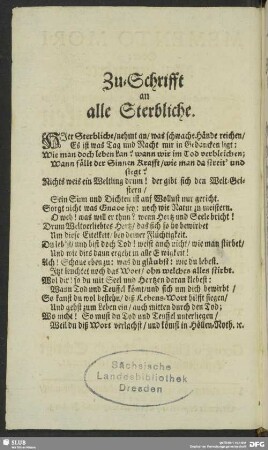 Zu-Schrifft
an
alle Sterbliche.
Jer Sterbliche/nehmt an/ was schwache Hände reichen/
Es ist was Tag und Nacht mir in Gedancken ligt:
Wie man doch leben kan? wann wir im Tod verbleichen;
Wann fällt der Sinnen Krafft/ wie man da streit' und
siegt?
Nichts weis ein Weltling drum! der gibt sich den Welt-Geistern/
Sein Sinn und Dichten ist auf Wollust nur gericht.
Sorgt nicht was Gnade sey: noch wie Natur zu meistern.
O weh! was will er thun? wenn Hertz und Seele bricht!
Drum Weltverliebtes Hertz/ das sich so hy bewirbet
Um diese Eitelkeit, bey deiner Flüchtigkeit.
Du lebst/ und bist doch Tod! weist auch nicht/ wie man stirbet/
Und wie dirs dann ergeht in alle Ewigkeit!
Ach! Schaue eben zu: was du glaubst: wie du lebest.
Itzt leuchtet noch das Wort/ ohn welches alles stirbt.
Wol dir! so du mit Seel und Hertzen daran klebest:
Wann Tod und Teuffel komt/und sich um dich bewirbt/
So kanst du wol bestehn/ diß Lebens-Wort hilfft siegen/
Und gehst zum Leben ein/ auch mitten durch den Tod;
Wo nicht! So must du Tod und Teuffel unterliegen/
Weil du diß Wort verlachst/ und komst in Höllen-Noth. ꝛc.
Sächsische
Landesbibliothek
Dresden
SLUB